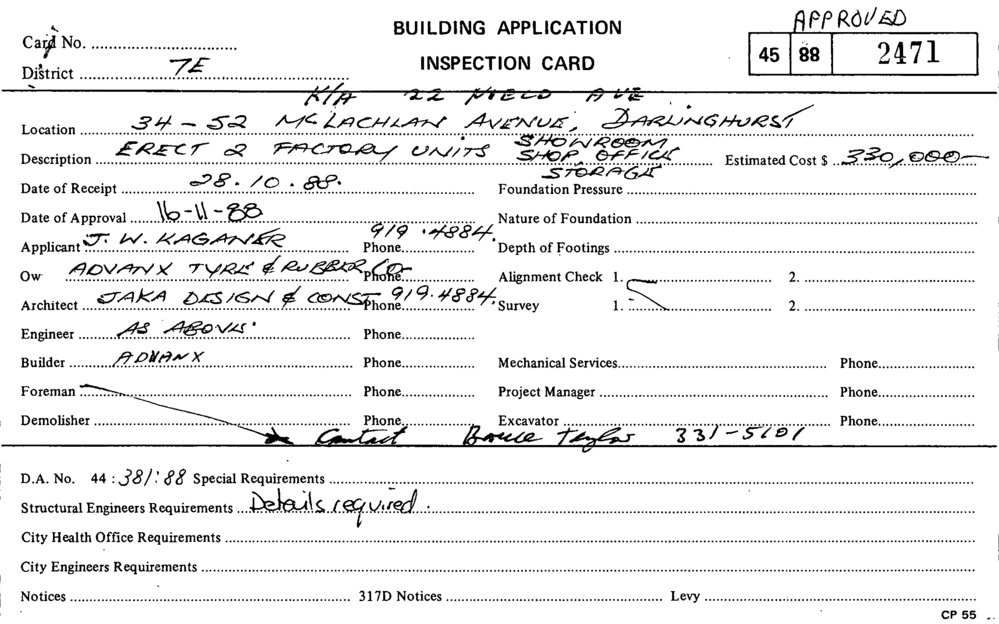 APPROVED
BUILDING APPLICATION
Card No.
45 88 2471
District 7E
INSPECTION CARD
K/A 22 NIELD AVE
Location 34-52 McLACHLAN AVENUE, DARLINGHURST
Description ERECT 2 FACTORY UNITS SHOWROOM SHOP, OFFICE STORAGE Estimated Cost $ 330,000—
Date of Receipt 28.10.88. Foundation Pressure
Date of Approval 16-11-88 Nature of Foundation
Applicant J. W. KAGANER Phone 919.4884. Depth of Footings
Ow ADVANX TYRE & RUBBER Co Phone Alignment Check 1. 2.
Architect JAKA DESIGN & CONST Phone 919.4884. Survey 1. 2.
Engineer AS ABOVE. Phone
Builder ADVANX Phone Mechanical Services Phone
Foreman Phone Project Manager Phone
Demolisher Phone Excavator Phone
Contact Bruce Taylor 331-5101
D.A. No. 44:381:88 Special Requirements
Structural Engineers Requirements Details required.
City Health Office Requirements
City Engineers Requirements
Notices 317D Notices Levy
CP 55